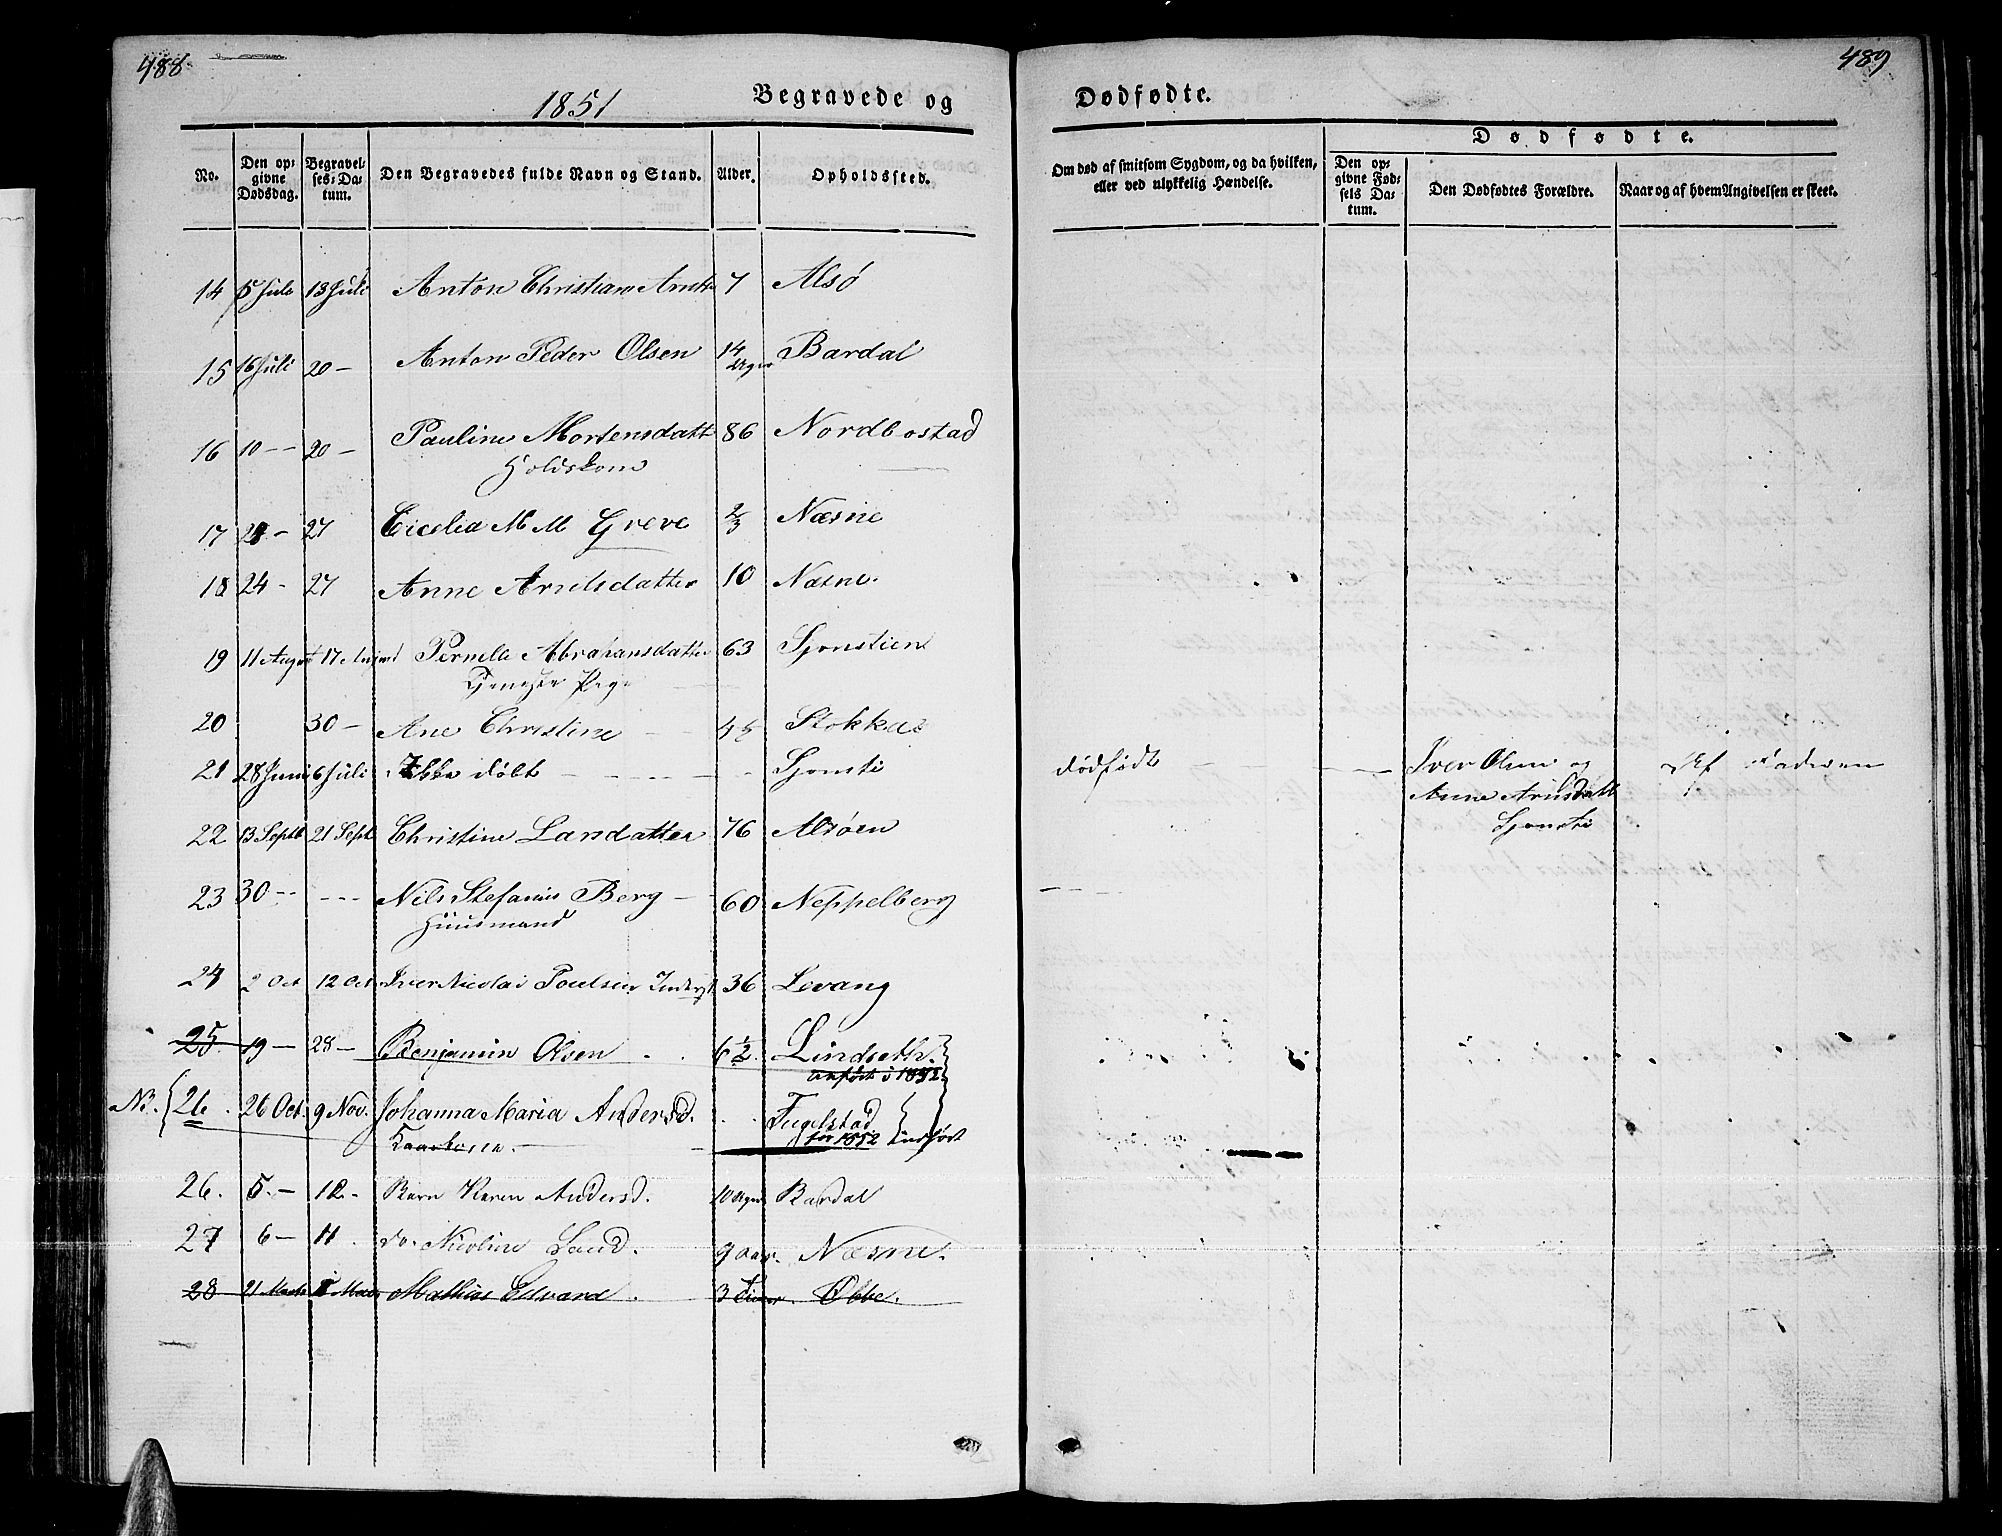 488
489
1851 Begravede og
Dødfødte.
Dødfødte.
No.
Den op-
givne
Dødsdag.
Begravel-
ses-Da-
tum.
Den Begravedes fulde Navn og Stand.
Alder.
Opholdssted.
Om død af smitsom Sygdom, og da hvilken,
eller ved ulykkelig Hændelse.
Den op-
givne Fød-
sels Da-
tum.
Den Dødfødtes Forældre.
Naar og af hvem Angivelsen er skeet.
14 5 Juli 13 Juli Anton Christian 7 Alsø
15 16 Juli 20 – Anton Peder Olsen 14 Uger Bardal
16 10 – – 20 – Pauline Mortensdatt 86 Nordbostad
17 – 27 Cicelia M M Greve 2/3 Næsne
18 24 – 27 Anne Arntsdatter 10 Næsne.
19 11 August 17 August Pernelle Abrahamsdatter 63 Sjonstien
20 30 – Ane Christine 45 Stokkas
21 28 Juni 6 Juli Ikke døbt Sjonsti dødfødt Iver Olsen og Af Faderen
Anne Arnsdatt
Sjonsti
22 13 Septb 21 Sept Christine Larsdatter 76 Alsøen
23 30 – – – – – Nils Stefanus Berg – 60 Neppelberg
Huusmand
24 2 Oct 12 Oct Iver Nicolai Poulsen Inderst 36 Levang
25. 19 – 28 – Benjamin Olsen 6 1/2. Lindseth.
anført i 1852
NB. 26. 26 Oct. 9 Nov. Johanna Maria Andersd. Fugelstad
for 1852 indført
26. 5. – 12. – Barn Karen Andersd. 10 Uger Bardal
27 6 – 11. do. Nicoline Lund. 9 aar. Næsne.
28 21 Mathias Edvard. 3 Øbbe.